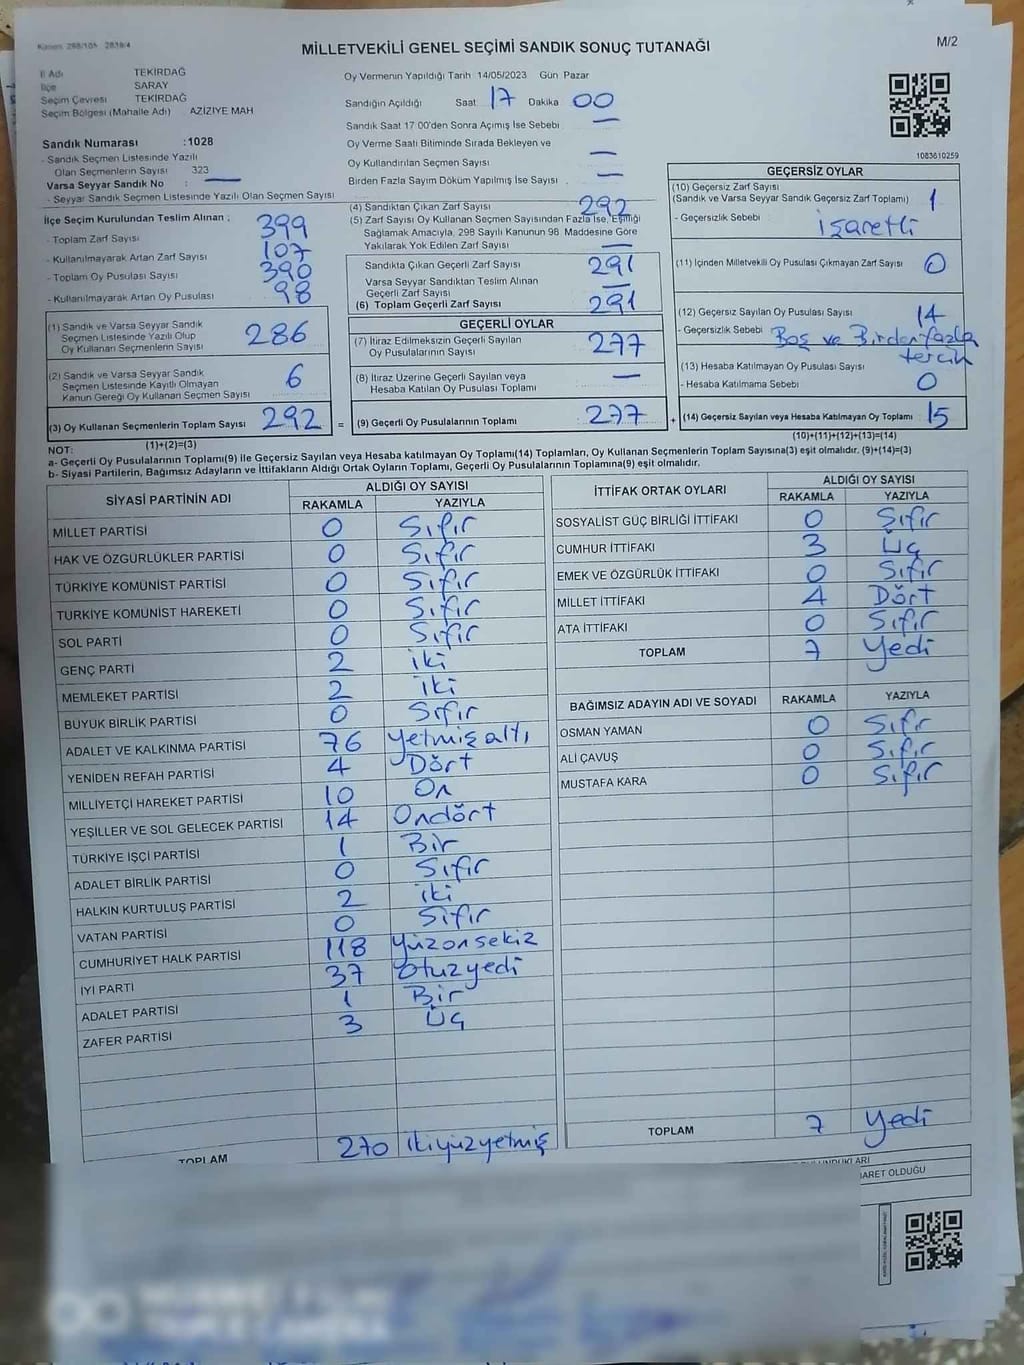 Kanun 298/105 2839/4
MİLLETVEKİLİ GENEL SEÇİMİ SANDIK SONUÇ TUTANAĞI
M/2
İl Adı TEKİRDAĞ
İlçe SARAY
Seçim Çevresi TEKİRDAĞ
Seçim Bölgesi (Mahalle Adı) AZİZİYE MAH
Sandık Numarası :1028
- Sandık Seçmen Listesinde Yazılı
Olan Seçmenlerin Sayısı 323
Varsa Seyyar Sandık No : —
- Seyyar Sandık Seçmen Listesinde Yazılı Olan Seçmen Sayısı
Oy Vermenin Yapıldığı Tarih 14/05/2023 Gün Pazar
Sandığın Açıldığı Saat 17 Dakika 00
Sandık Saat 17:00'den Sonra Açımış İse Sebebi —
Oy Verme Saati Bitiminde Sırada Bekleyen ve
Oy Kullandırılan Seçmen Sayısı —
Birden Fazla Sayım Döküm Yapılmış İse Sayısı . —
1083610259
İlçe Seçim Kurulundan Teslim Alınan ;
- Toplam Zarf Sayısı 399
- Kullanılmayarak Artan Zarf Sayısı 107
- Toplam Oy Pusulası Sayısı 390
- Kullanılmayarak Artan Oy Pusulası 98
(1) Sandık ve Varsa Seyyar Sandık
Seçmen Listesinde Yazılı Olup
Oy Kullanan Seçmenlerin Sayısı 286
(2) Sandık ve Varsa Seyyar Sandık
Seçmen Listesinde Kayıtlı Olmayan
Kanun Gereği Oy Kullanan Seçmen Sayısı 6
(3) Oy Kullanan Seçmenlerin Toplam Sayısı 292 =
(1)+(2)=(3)
(4) Sandıktan Çıkan Zarf Sayısı 292
(5) Zarf Sayısı Oy Kullanan Seçmen Sayısından Fazla İse, Eşitliği
Sağlamak Amacıyla, 298 Sayılı Kanunun 98. Maddesine Göre
Yakılarak Yok Edilen Zarf Sayısı —
Sandıkta Çıkan Geçerli Zarf Sayısı 291
Varsa Seyyar Sandıktan Teslim Alınan
Geçerli Zarf Sayısı —
(6) Toplam Geçerli Zarf Sayısı 291
GEÇERLİ OYLAR
(7) İtiraz Edilmeksizin Geçerli Sayılan
Oy Pusulalarının Sayısı 277
(8) İtiraz Üzerine Geçerli Sayılan veya
Hesaba Katılan Oy Pusulası Toplamı —
(9) Geçerli Oy Pusulalarının Toplamı 277 +
GEÇERSİZ OYLAR
(10) Geçersiz Zarf Sayısı
(Sandık ve Varsa Seyyar Sandık Geçersiz Zarf Toplamı) 1
- Geçersizlik Sebebi : işaretli
(11) İçinden Milletvekili Oy Pusulası Çıkmayan Zarf Sayısı 0
(12) Geçersiz Sayılan Oy Pusulası Sayısı 14
- Geçersizlik Sebebi Boş ve Birden fazla
tercih
(13) Hesaba Katılmayan Oy Pusulası Sayısı
- Hesaba Katılmama Sebebi 0
(14) Geçersiz Sayılan veya Hesaba Katılmayan Oy Toplamı 15
(10)+(11)+(12)+(13)=(14)
NOT:
a- Geçerli Oy Pusulalarının Toplamı(9) ile Geçersiz Sayılan veya Hesaba katılmayan Oy Toplamı(14) Toplamları, Oy Kullanan Seçmenlerin Toplam Sayısına(3) eşit olmalıdır. (9)+(14)=(3)
b- Siyasi Partilerin, Bağımsız Adayların ve İttifakların Aldığı Ortak Oyların Toplamı, Geçerli Oy Pusulalarının Toplamına(9) eşit olmalıdır.
SİYASİ PARTİNİN ADI ALDIĞI OY SAYISI
RAKAMLA YAZIYLA
MİLLET PARTİSİ 0 Sıfır
HAK VE ÖZGÜRLÜKLER PARTİSİ 0 Sıfır
TÜRKİYE KOMÜNİST PARTİSİ 0 Sıfır
TÜRKİYE KOMÜNİST HAREKETİ 0 Sıfır
SOL PARTİ 0 Sıfır
GENÇ PARTİ 2 iki
MEMLEKET PARTİSİ 2 iki
BÜYÜK BİRLİK PARTİSİ 0 Sıfır
ADALET VE KALKINMA PARTİSİ 76 yetmişaltı
YENİDEN REFAH PARTİSİ 4 Dört
MİLLİYETÇİ HAREKET PARTİSİ 10 On
YEŞİLLER VE SOL GELECEK PARTİSİ 14 Ondört
TÜRKİYE İŞÇİ PARTİSİ 1 Bir
ADALET BİRLİK PARTİSİ 0 Sıfır
HALKIN KURTULUŞ PARTİSİ 2 iki
VATAN PARTİSİ 0 Sıfır
CUMHURİYET HALK PARTİSİ 118 Yüzonsekiz
İYİ PARTİ 37 Otuzyedi
ADALET PARTİSİ 1 Bir
ZAFER PARTİSİ 3 Üç
TOPLAM 270 ikiyüzyetmiş
İTTİFAK ORTAK OYLARI ALDIĞI OY SAYISI
RAKAMLA YAZIYLA
SOSYALİST GÜÇ BİRLİĞİ İTTİFAKI 0 Sıfır
CUMHUR İTTİFAKI 3 Üç
EMEK VE ÖZGÜRLÜK İTTİFAKI 0 Sıfır
MİLLET İTTİFAKI 4 Dört
ATA İTTİFAKI 0 Sıfır
TOPLAM 7 Yedi
BAĞIMSIZ ADAYIN ADI VE SOYADI RAKAMLA YAZIYLA
OSMAN YAMAN 0 Sıfır
ALİ ÇAVUŞ 0 Sıfır
MUSTAFA KARA 0 Sıfır
TOPLAM 7 Yedi
OLDUĞU